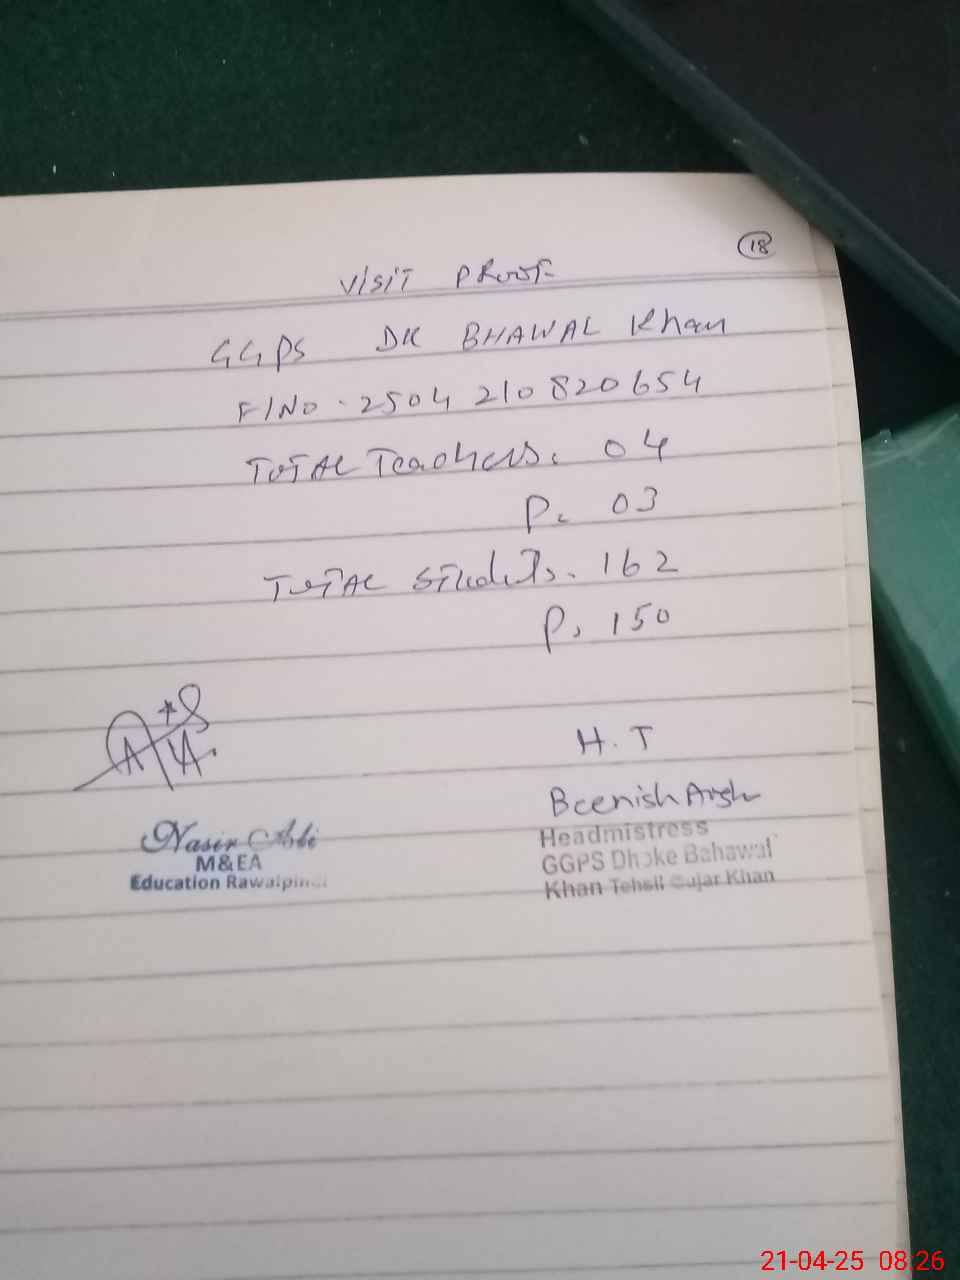 18
VISIT PROOF
GGPS DK BHAWAL Khan
F/NO. 2504 210820654
TOTAL Teachers. 04
P. 03
TOTAL Students. 162
P. 150
H. T
Beenish
Nasir
M&EA
Education Rawalpindi
Headmistress
GGPS Dhoke Bahawal
Khan Tehsil Gujar Khan
21-04-25 08:26